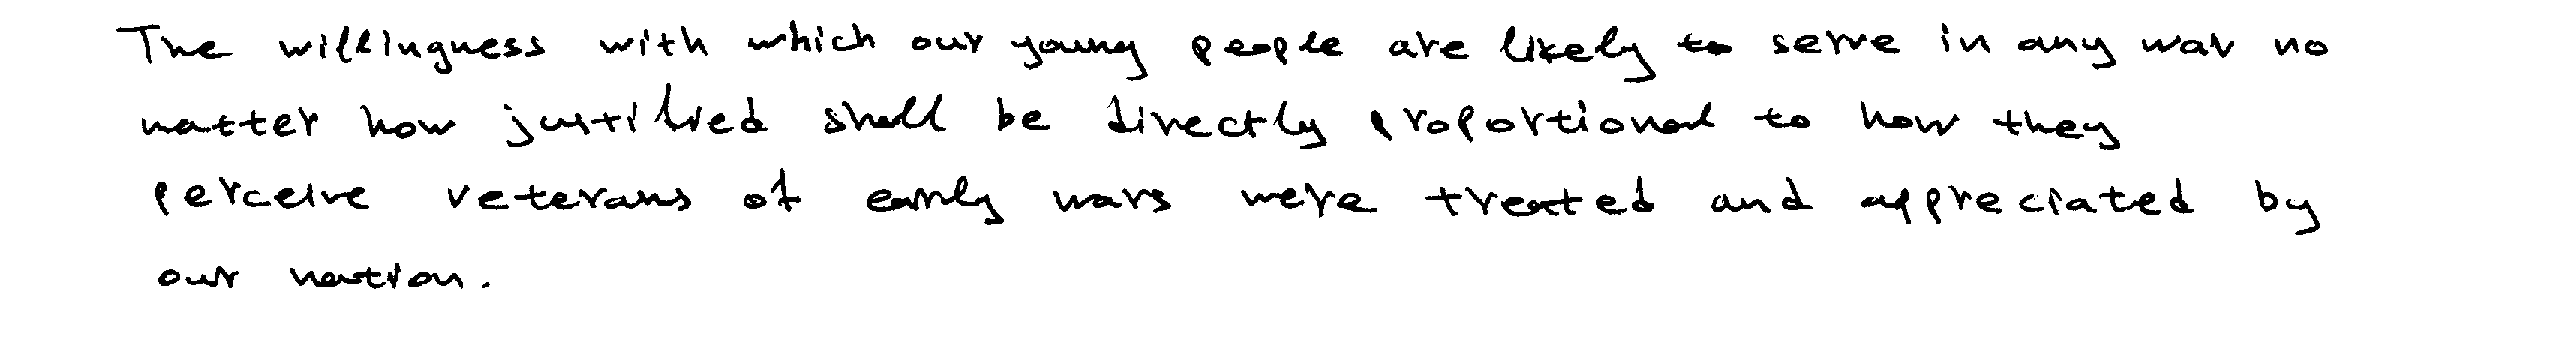 The willingness with which our young people are likely to serve in any war no
matter how justified shall be directly proportional to how they
perceive veterans of early wars were treated and appreciated by
our nation.